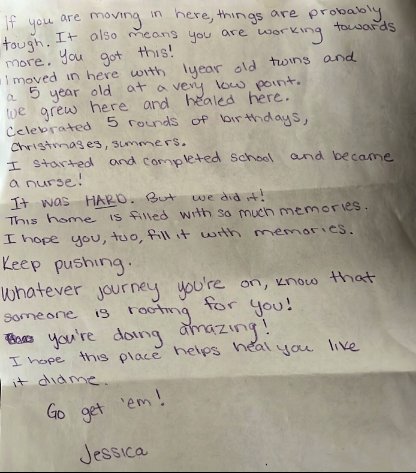 If you are moving in here, things are probably
tough. It also means you are working towards
more. You got this!
I moved in here with 1year old twins and
a 5 year old at a very low point.
We grew here and healed here.
Celebrated 5 rounds of birthdays,
Christmases, summers.
I started and completed school and became
a nurse!
It was HARD. But we did it!
This home is filled with so much memories.
I hope you, too, fill it with memories.
Keep pushing.
Whatever journey you're on, know that
someone is rooting for you!
you're doing amazing!
I hope this place helps heal you like
it did me.
Go get 'em!
Jessica